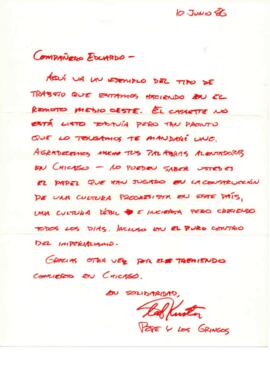 10 JUNIO 86
COMPAÑERO EDUARDO -
AQUÍ VA UN EJEMPLO DEL TIPO DE
TRABAJO QUE ESTAMOS HACIENDO EN EL
REMOTO MEDIO OESTE. EL CASETTE NO
ESTÁ LISTO TODAVÍA PERO TAN PRONTO
QUE LO TENGAMOS TE MANDARÉ UNO.
AGRADECEMOS MUCHO TUS PALABRAS ALENTADORES
EN CHICAGO - NO PUEDEN SABER USTEDES
EL PAPEL QUE HAN JUGADO EN LA CONSTRUCCIÓN
DE UNA CULTURA PROGRESISTA EN ESTE PAÍS,
UNA CULTURA DÉBIL E INCIERTA PERO CRECIENDO
TODOS LOS DÍAS. INCLUSO EN EL PURO CENTRO
DEL IMPERIALISMO.
GRACIAS OTRA VEZ POR EL TREMENDO
CONCIERTO EN CHICAGO.
EN SOLIDARIDAD,
PEPE Y LOS GRINGOS